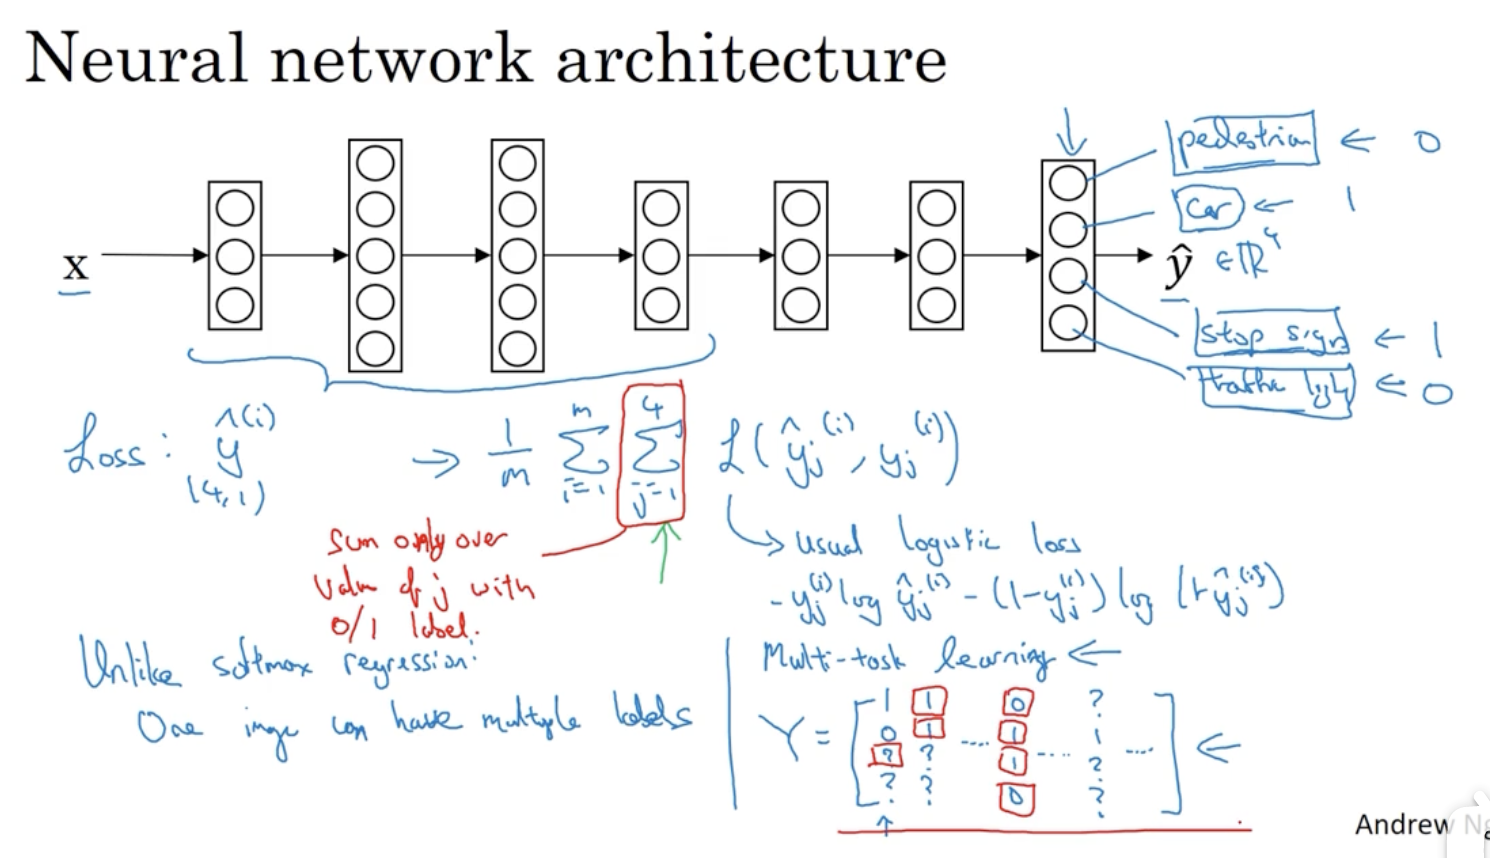 Neural network architecture
pedestrian ← 0
car ← 1
x
ŷ ∈ ℝ⁴
stop sign ← 1
traffic light ← 0
Loss: ŷ^(i) → 1/m Σ_{i=1}^{m} Σ_{j=1}^{4} ℒ(ŷ_j^(i), y_j^(i))
(4,1)
Sum only over
value of j with
0/1 label.
usual logistic loss
- y_j^(i) log ŷ_j^(i) - (1-y_j^(i)) log (1-ŷ_j^(i))
Unlike softmax regression:
One image can have multiple labels
Multi-task learning ←
1 1 0 ?
0 1 1 1
Y = [ ? ? ..... 1 .... ? .... ] ←
? ? 0 ?
Andrew